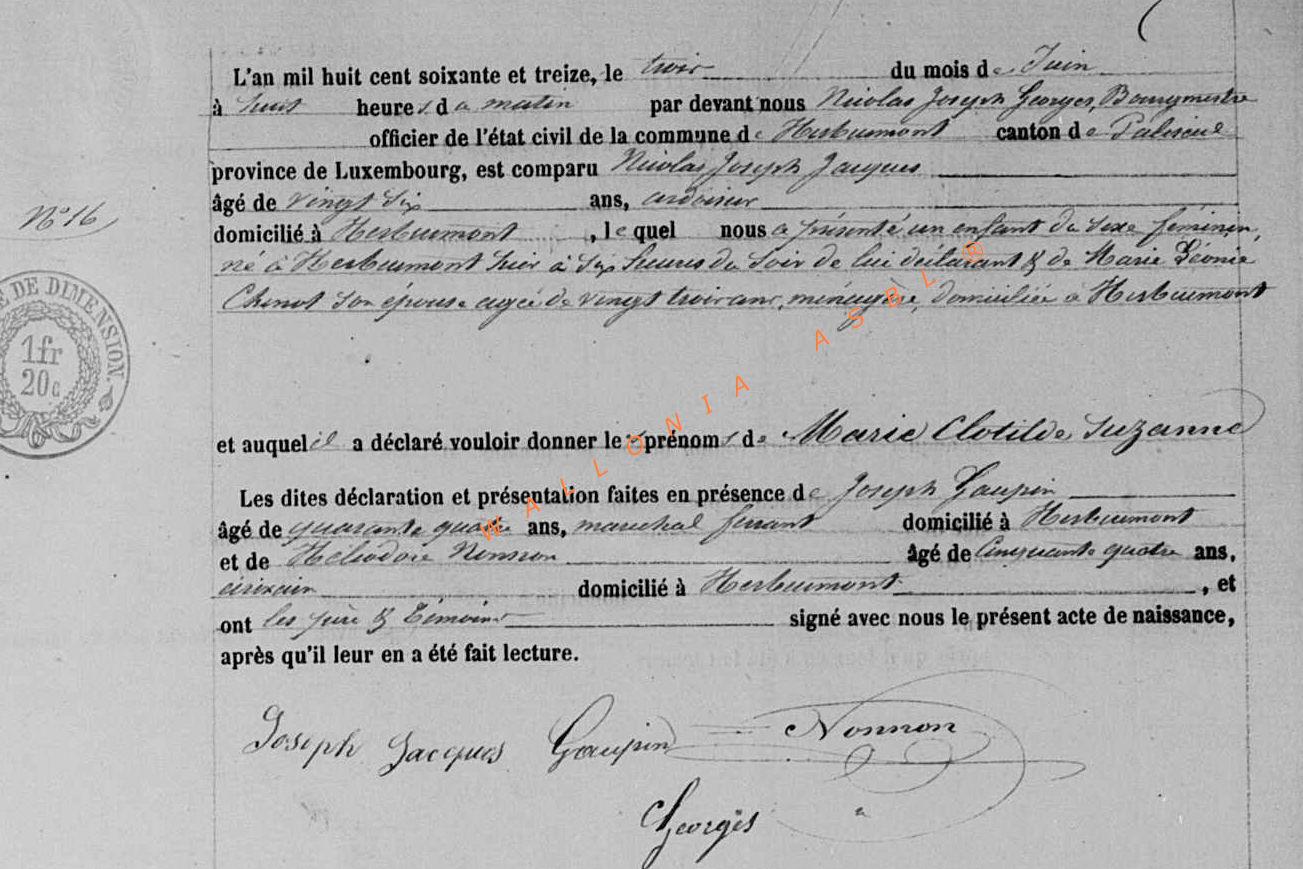 L'an mil huit cent soixante et treize, le trois du mois de Juin
à huit heures du matin par devant nous Nicolas Joseph Georges Bourgmestre
officier de l'état civil de la commune de Herbeumont canton de Paliseul
province de Luxembourg, est comparu Nicolas Joseph Jacques
âgé de vingt six ans, ardoisier
N° 16
domicilié à Herbeumont, lequel nous a présenté un enfant du sexe féminin,
né à Herbeumont hier à six heures du soir de lui déclarant & de Marie Léonie
Chenot son épouse agée de vingt trois ans, ménagère, domiciliée à Herbeumont
DE DIMENSION.
1fr
20c
et auquel il a déclaré vouloir donner les prénoms de Marie Clotilde Suzanne
Les dites déclaration et présentation faites en présence de Joseph Gaupin
âgé de quarante quatre ans, marechal ferrant domicilié à Herbeumont
et de Héliodore Nonnon âgé de Cinquante quatre ans,
domicilié à Herbeumont, et
ont les père & témoins signé avec nous le présent acte de naissance,
après qu'il leur en a été fait lecture.
Joseph Jacques Gaupin Nonnon
Georges
WALLONIA ASBL ®